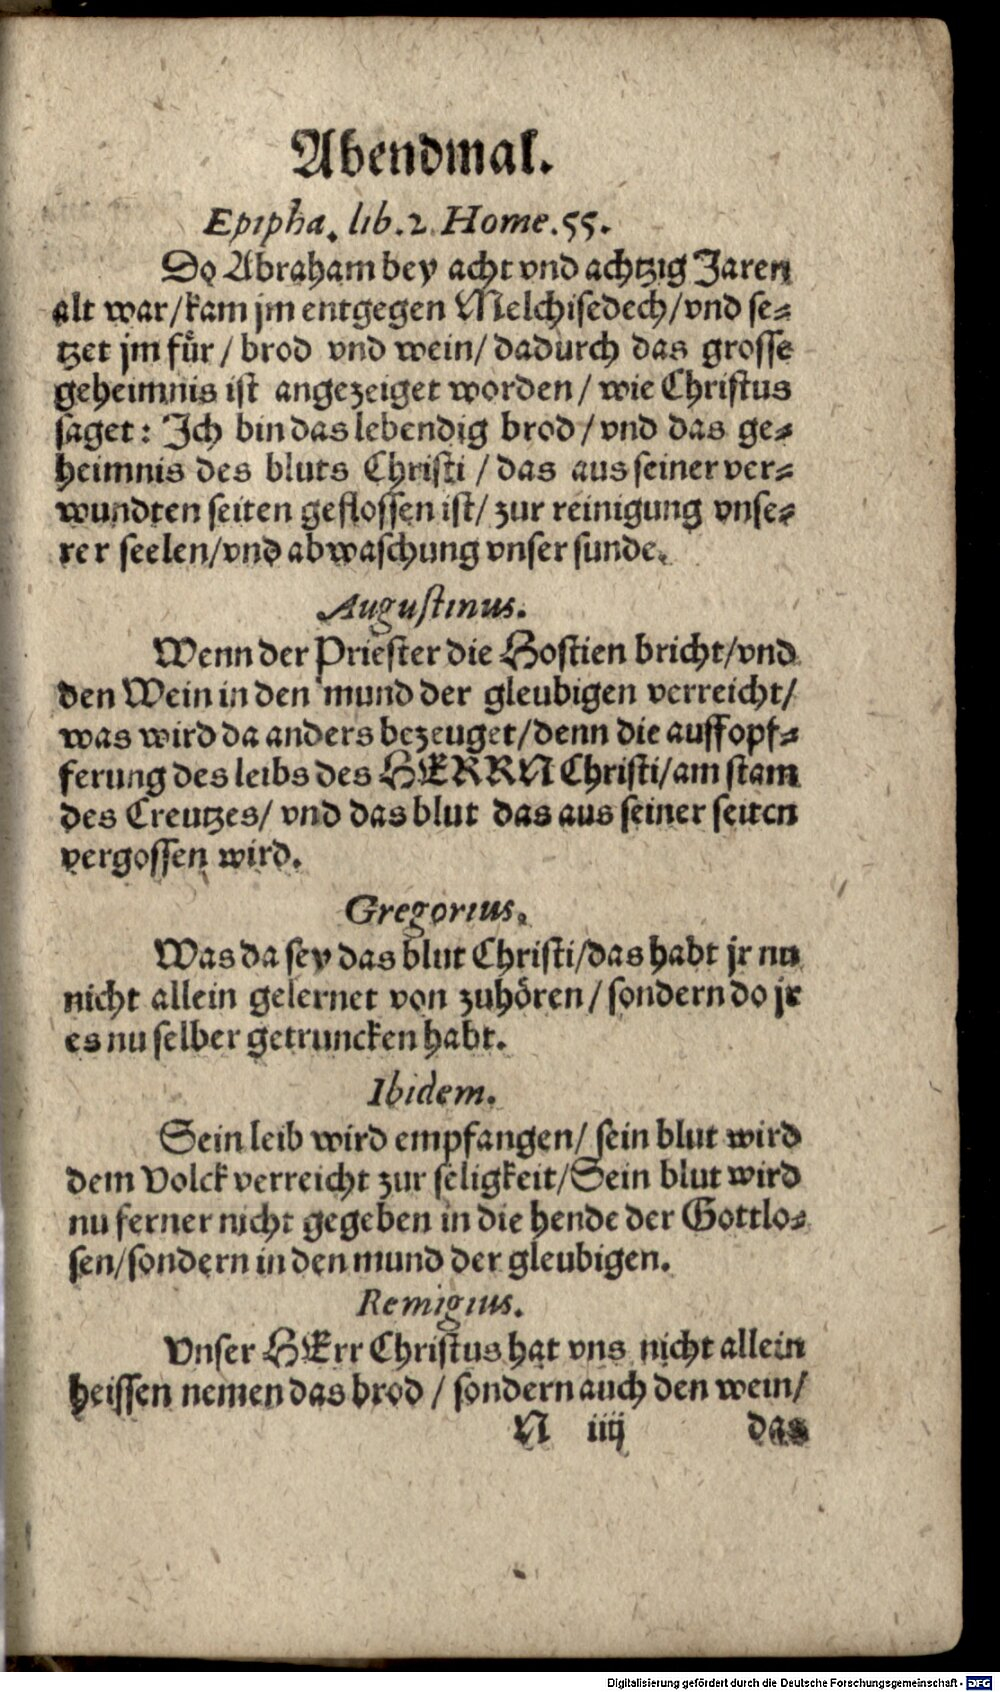 Abendmal.
Epipha. lib.2 Home.55.
Do Abraham bey acht vnd achtzig Jaren
alt war/kam jm entgegen Melchisedech/vnd se-
tzet jm für/ brod vnd wein/ dadurch das grosse
geheimnis ist angezeiget worden/ wie Christus
saget: Ich bin das lebendig brod/vnd das ge-
heimnis des bluts Christi/ das aus seiner ver-
wundten seiten geflossen ist/ zur reinigung vnse-
rer seelen/vnd abwaschung vnser sunde.
Augustinus.
Wenn der Priester die Hostien bricht/vnd
den Wein in den mund der gleubigen verreicht/
was wird da anders bezeuget/denn die auffopf-
ferung des leibs des HERRN Christi/am stam
des Creutzes/ vnd das blut das aus seiner seiten
vergossen wird.
Gregorius.
Was da sey das blut Christi/das habt jr nu
nicht allein gelernet von zuhören/ sondern do jr
es nu selber getruncken habt.
Ibidem.
Sein leib wird empfangen/ sein blut wird
dem Volck verreicht zur seligkeit/Sein blut wird
nu ferner nicht gegeben in die hende der Gottlo-
sen/sondern in den mund der gleubigen.
Remigius.
Vnser HErr Christus hat vns nicht allein
heissen nemen das brod/ sondern auch den wein/
N iiij das
Digitalisierung gefördert durch die Deutsche Forschungsgemeinschaft - DFG